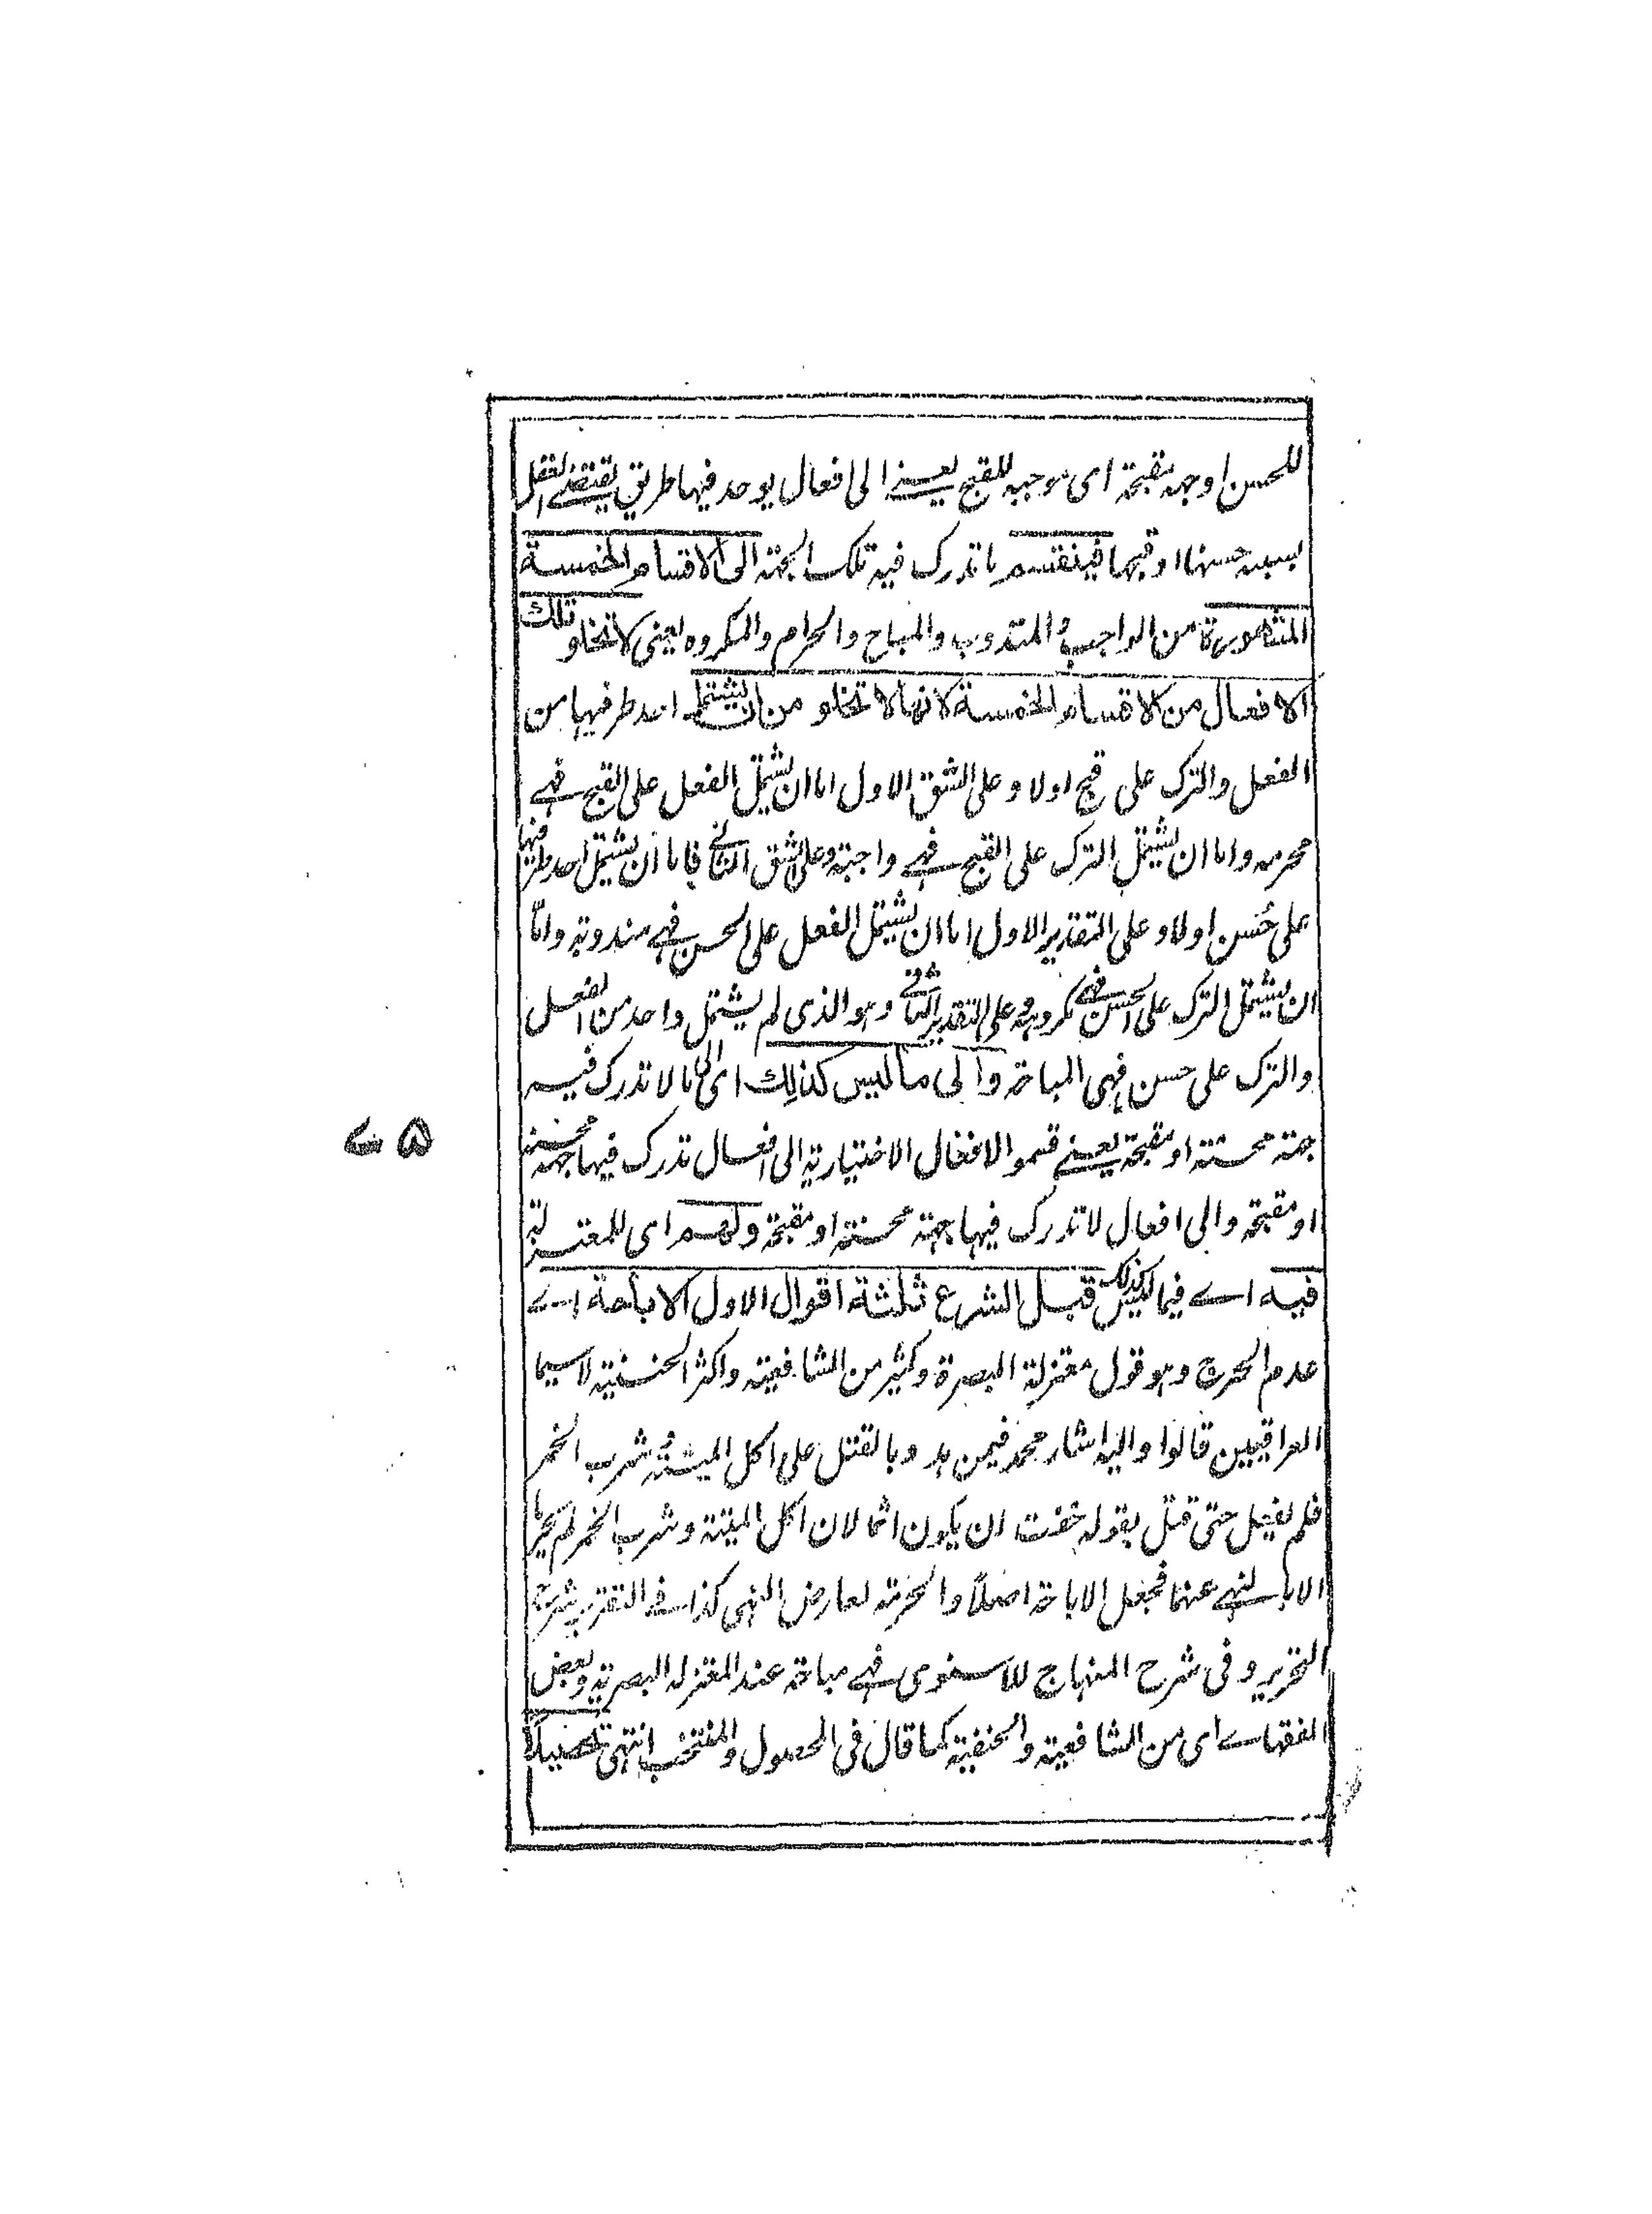 للحسن او جهة مقبحة اى موجبه للقبح يعنے الى افعال يوجد فيها طريق يقتضے العقل
بسببه حسنها او قبحها فينقسم ما تدرك فيه تلك الجهة الى الاقسام الخمسة
المشهورة من الواجب والمندوب والمباح والحرام والمكروه يعنى لا تخلو تلك
الافعال من الاقسام الخمسة لانها لا تخلو من ان يشتمل احد طرفيها من
الفعل والترك على قبح اولا وعلى الشق الاول اما ان يشتمل الفعل على القبح فهے
محرمه واما ان يشتمل الترك على القبح فهے واجبة وعلى الشق الثانے فاما ان يشتمل احد طرفيها
على حُسن اولا وعلى التقدير الاول اما ان يشتمل الفعل على الحسن فهے مندوبة واما
ان يشتمل الترك على الحسن فهے مكروهة وعلى التقدير الثانے وهو الذى لم يشتمل واحد من الفعل
والترك على حسن فهى المباحة والى ما ليس كذلك اى الى ما لا تدرك فيه
جهة محسنة او مقبحة يعنے قسموا الافعال الاختيارية الى افعال تدرك فيها جهة محسنة
او مقبحة والى افعال لا تدرك فيها جهة محسنة او مقبحة ولهم اى للمعتزلة
فيه اے فيما ليس كذلك قبل الشرع ثلثة اقوال الاول الاباحة اے
عدم الحرج وهو قول معتزلة البصرة وكثير من الشافعية واكثر الحنفية لا سيما
العراقيين قالوا واليه اشار محمد فيمن هدد بالقتل على اكل الميتة وشرب الخمر
فلم يفعل حتى قتل بقوله خفت ان يكون اثما لان اكل الميتة وشرب الخمر لم يحرما
الا بالنهے عنهما فجعل الاباحة اصلاً والحرمة لعارض النهى كذا فے التقرير شرح
التحرير وفى شرح المنهاج للاسنوى فهے مباحة عند المعتزله البصرية وبعض
الفقهاے اى من الشافعية والحنفية كما قال فى المحصول والمنتخب انتهى تحصيلا
۷۵